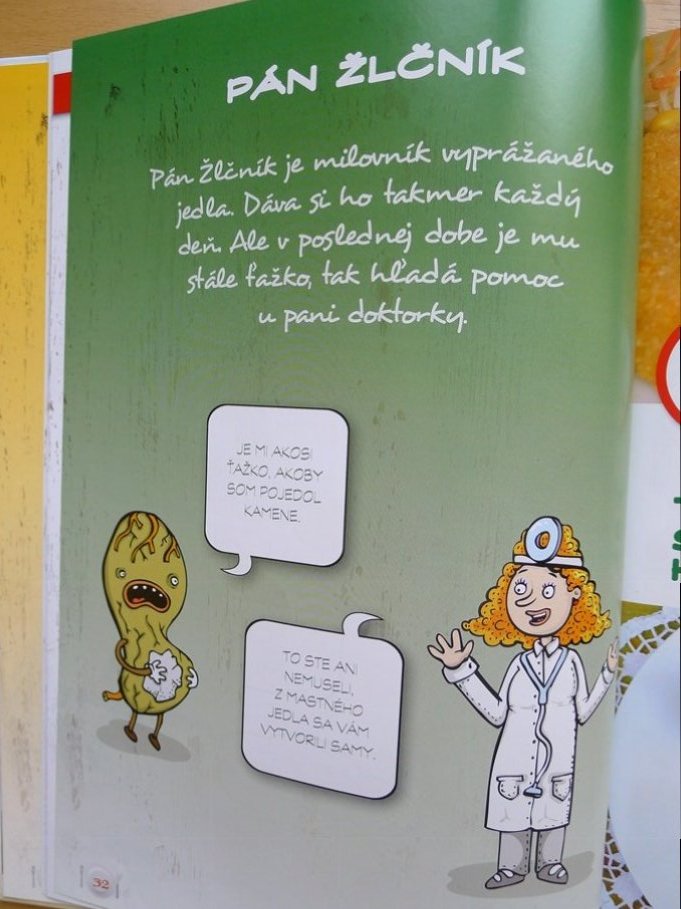 PÁN ŽLČNÍK
Pán Žlčník je milovník vyprážaného
jedla. Dáva si ho takmer každý
deň. Ale v poslednej dobe je mu
stále ťažko, tak hľadá pomoc
u pani doktorky.
JE MI AKOSI
ŤAŽKO, AKOBY
SOM POJEDOL
KAMENE.
TO STE ANI
NEMUSELI,
Z MASTNÉHO
JEDLA SA VÁM
VYTVORILI SAMY.
32